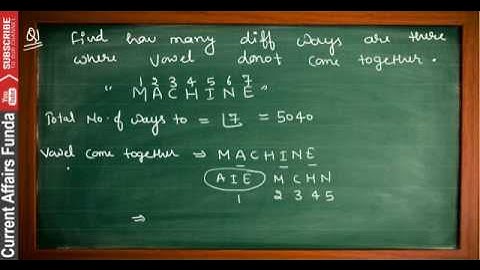 Q1 Find how many diff ways are there
where vowel donot come together.
1 2 3 4 5 6 7
" MACHINE "
Total No. of ways to = ⌊7 = 5040
Vowel come together ⇒ MACHINE
AIE M C H N
1 2 3 4 5
⇒
SUBSCRIBE
Current Affairs Funda
You Tube